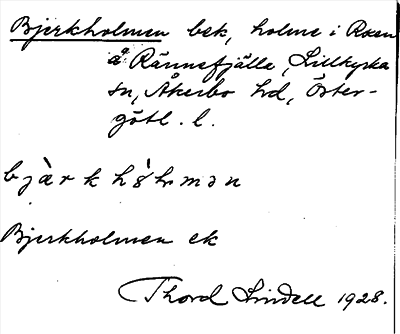 Bjerkholmen bek, holme i Roxen
å Rännefjälla, Lillkyrka
sn, Åkerbo hd, Öster-
götl. l.
bjàrkhólmən
Bjerkholmen ek
Thord Lindell 1928.